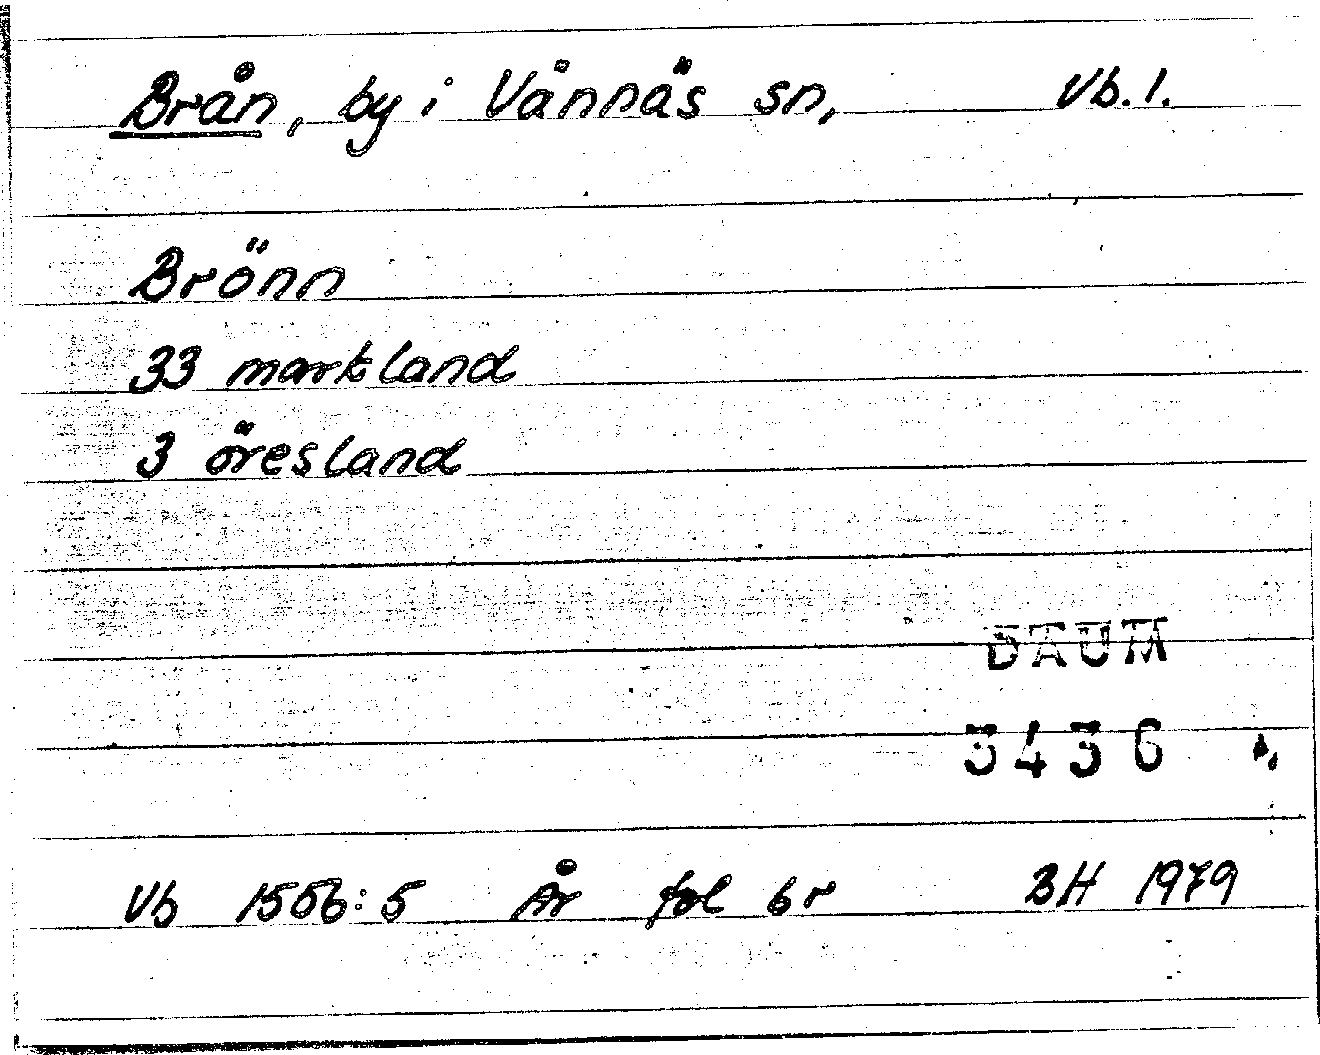 Brån, by i Vännäs sn, Vb. l.
Brönn
33 marksland
3 öresland
DAUM
3436
Vb 1556:5 År fol 6r BH 1979